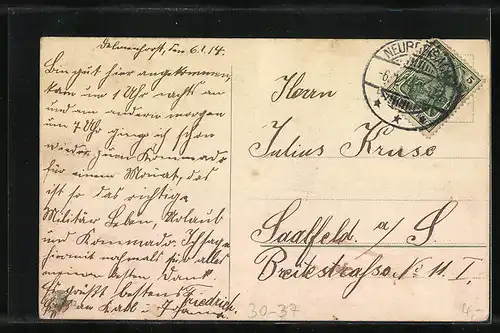 Delmenhorst, den 6.1.14.
Bin gut hier angekommen,
kam um 1 Uhr nachts an
und am andern morgen
um 7 Uhr ging ich schon
wieder zum Kommando
für einen Monat, das
ist so das richtige
Militär Leben, Urlaub
und Kommando. Ich sage
hiermit nochmals für alles
meinen besten Dank.
Es grüßt bestens Friedrich
Herrn
Julius Kruse
Saalfeld a/S.
Breitestrasse No 11 I.
5
30-37